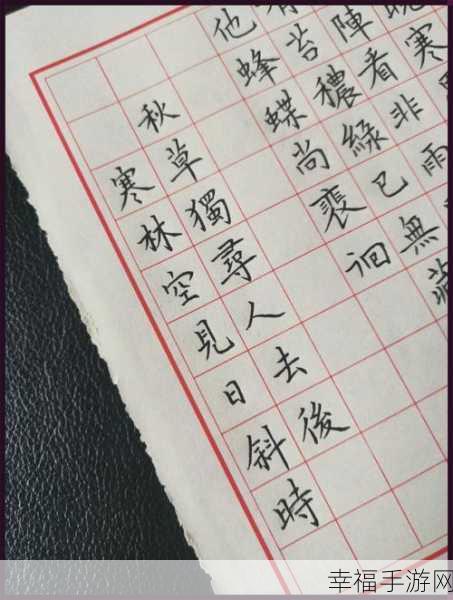 晚寒
陣看非雨
苔穠綠已無藏
他蜂蝶尚裵迴
秋草獨尋人去後
寒林空見日斜時
幸福手游网